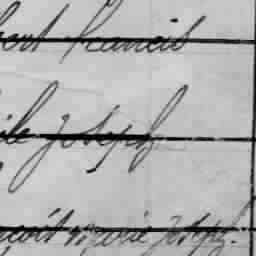 bert Francis
ile Joseph
noit Marie Joseph.